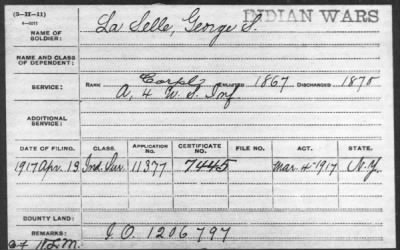 (3-II-11)
INDIAN WARS
NAME OF SOLDIER: La Selle, George S.
NAME AND CLASS OF DEPENDENT:
SERVICE: RANK Corpl ENLISTED 1867 DISCHARGED 1870
A, 4 U.S. Inf
ADDITIONAL SERVICE:
DATE OF FILING. CLASS. APPLICATION NO. CERTIFICATE NO. FILE NO. ACT. STATE.
1917 Apr. 13 Ind. Sur. 11377 7445 Mar. 4-1917 N.Y.
BOUNTY LAND:
REMARKS: I.O. 1206797